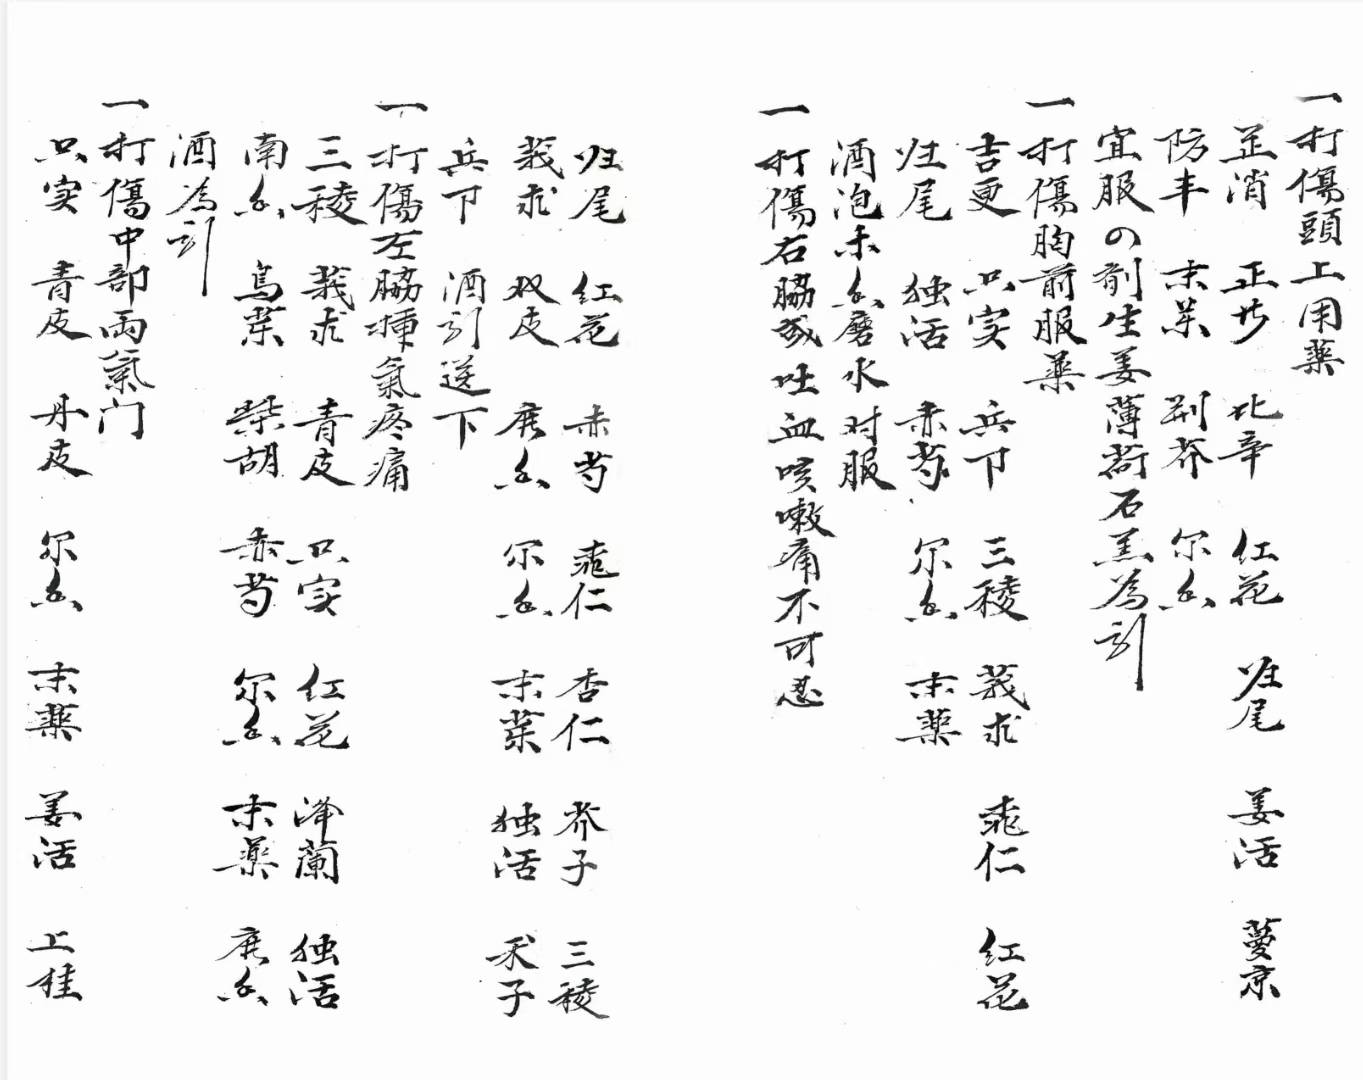 一打傷頭上用藥
芷消 正芎 北辛 红花 归尾 姜活 蔓京
防丰 末薬 荆芥 尔香
宜服の剤生姜薄荷石羔為引
一打傷胸前服薬
吉更 只实 兵卩 三稜 莪朮 桃仁 红花
归尾 独活 赤芍 尔香 末薬
酒泡木香磨水对服
一打傷右脇或吐血咳嗽痛不可忍
归尾 红花 赤芍 桃仁 杏仁 芥子 三稜
莪朮 双皮 鹿香 尔香 末薬 独活 子
兵卩 酒引送下
一打傷左脇插氣疼痛
三稜 莪朮 青皮 只实 红花 泽蘭 独活
南香 烏薬 柴胡 赤芍 尔香 末薬 鹿香
酒為引
一打傷中部両氣门
只实 青皮 丹皮 尔香 末薬 姜活 上桂